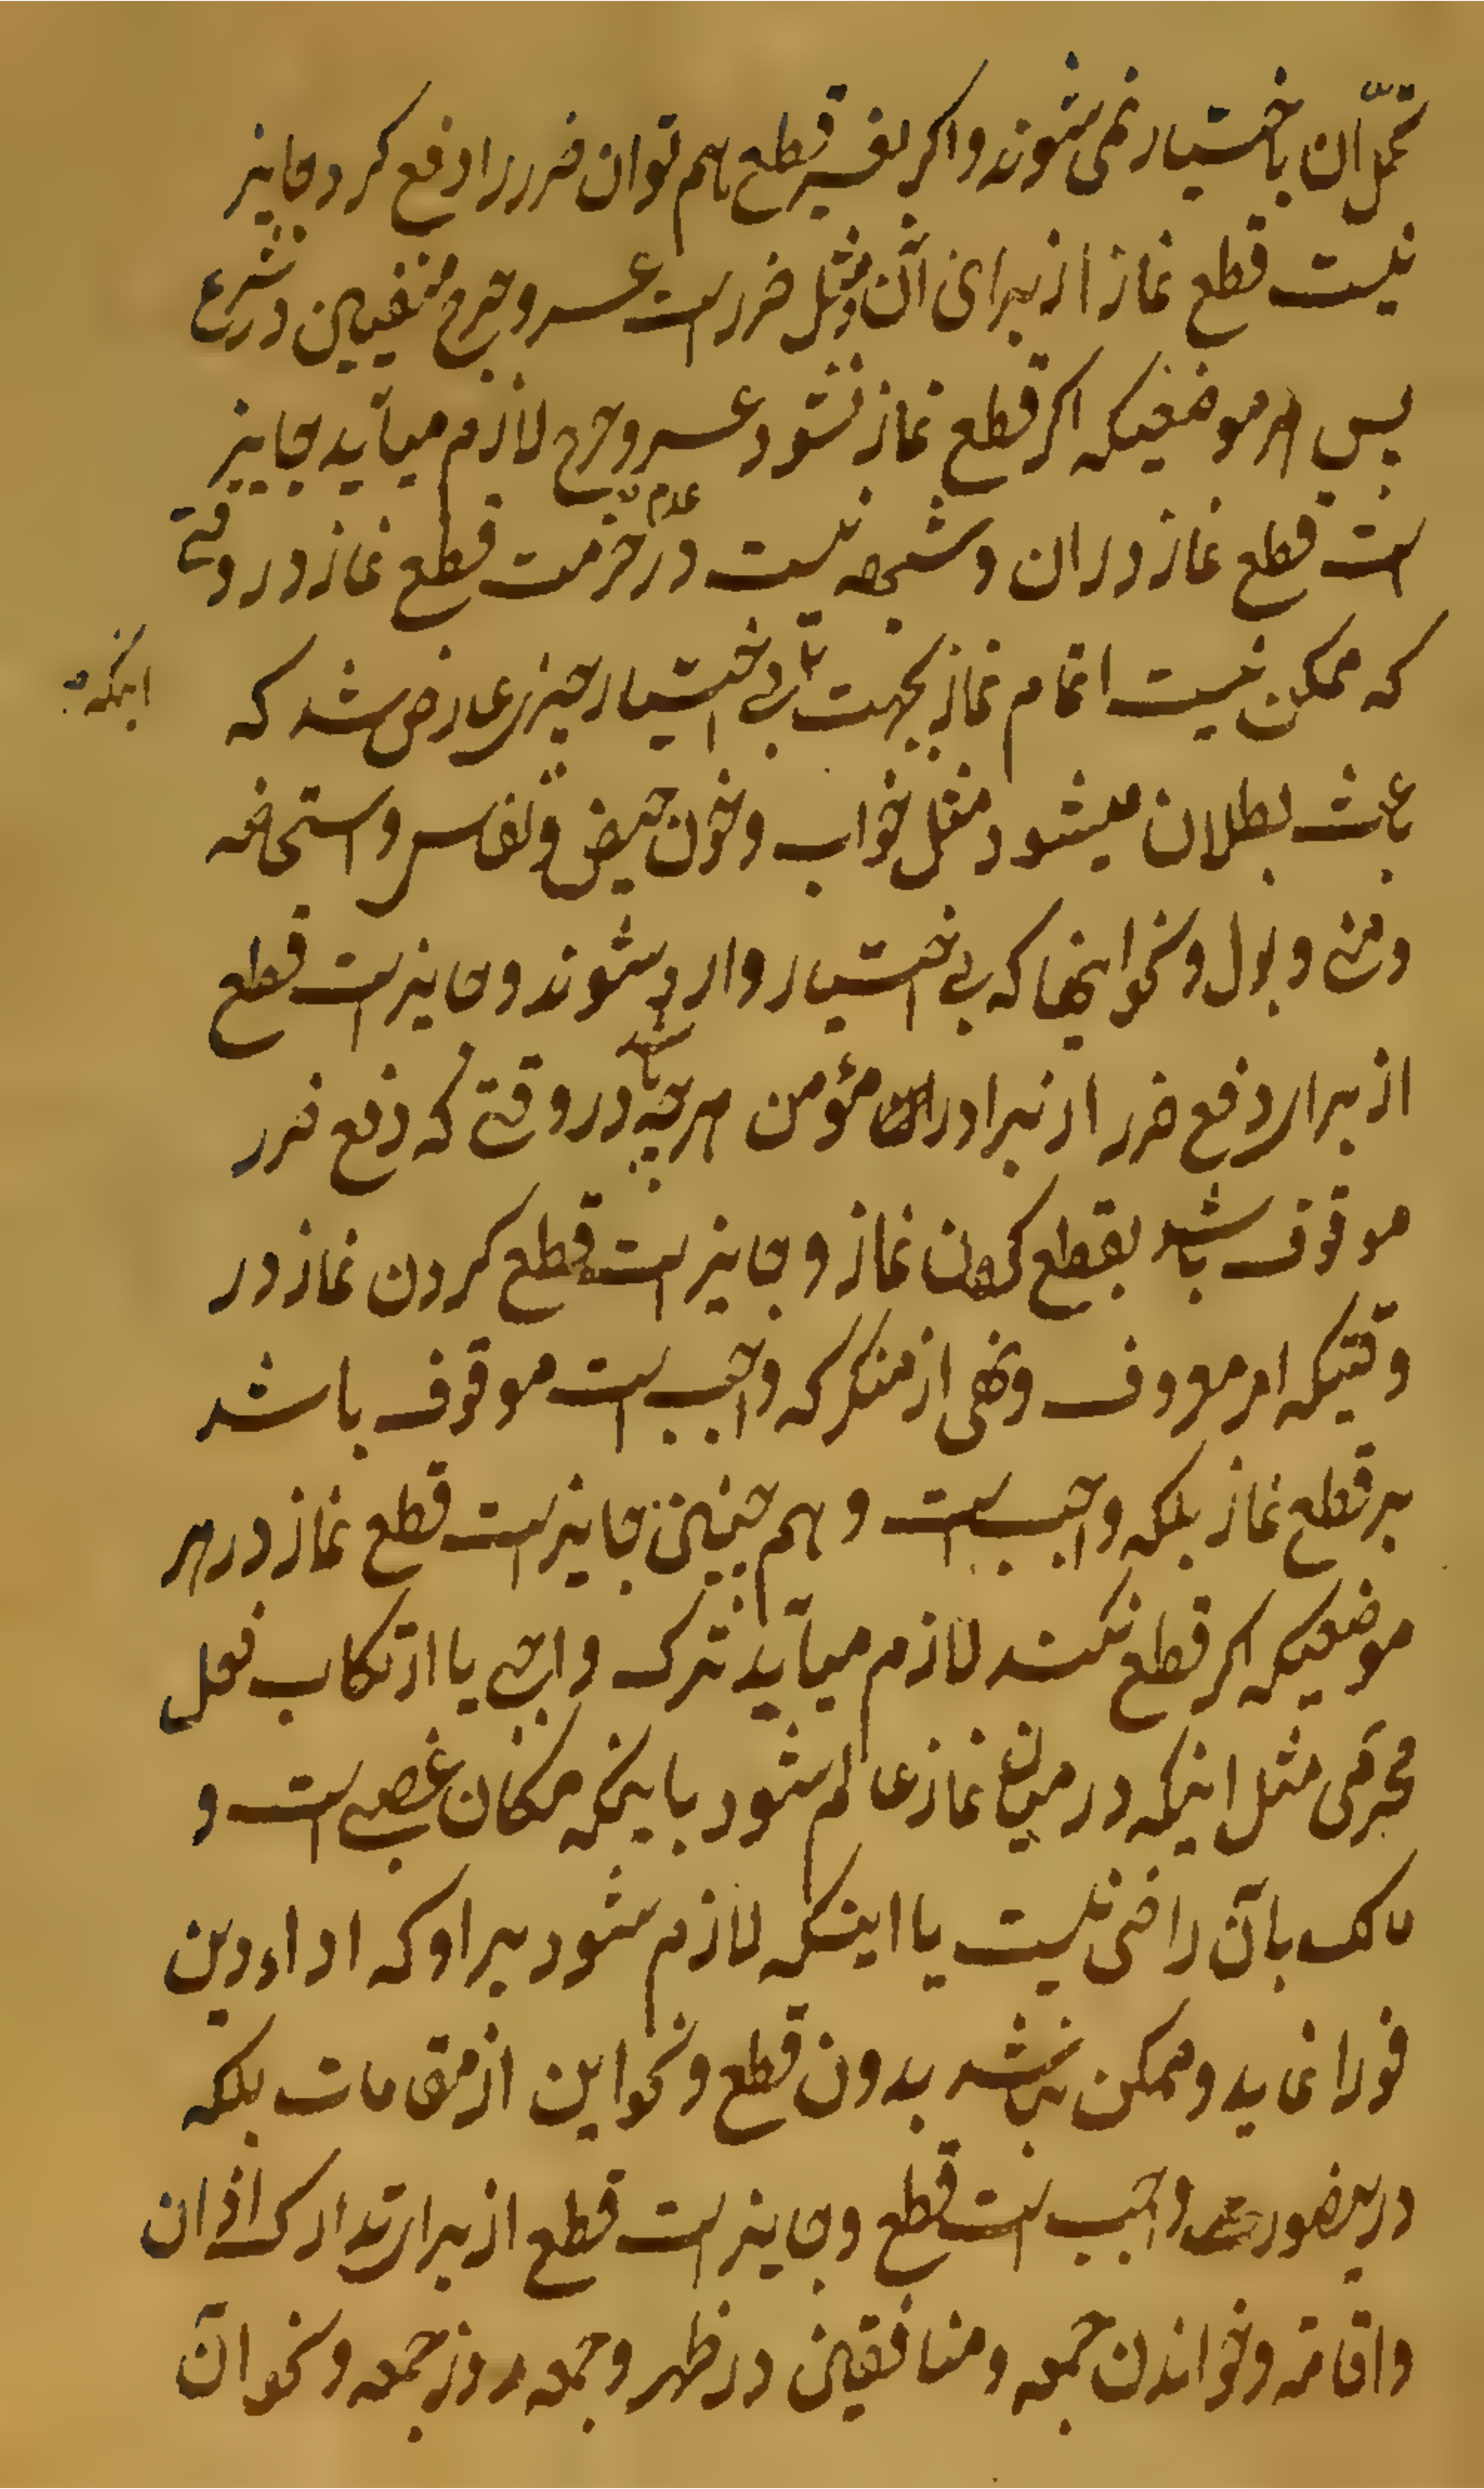 تحمّل آن باختیار نمی شوند و اکر بغیر قطع هم توان ضرر را دفع کرد جایز
نیست قطع نماز از برای آن و مثل ضرر است عسر و حرج منفیین در شرع
پس هر موضعیکه اکر قطع نماز نشود عسر و حرج لازم میآید جایز
است قطع نماز در ان و شبهه نیست در عدم حرمت قطع نماز در وقتی
که ممکن نیست اتمام نماز بجهت اینکه بی اختیار چیزی عارض شد که
باعث بطلان میشود مثل خواب و خون حیض و نفاس و استحاضه
و منی و بول و نحو اینها که بی اختیار وارد شوند و جایز است قطع
از برای دفع ضرر از برادران مؤمن هر چه باشد در وقتی که دفع ضرر
موقوف باشد بقطع کردن نماز و جایز است قطع کردن نماز در
وقتیکه امر معروف و نهی از منکر که واجب است موقوف باشد
بر قطع نماز بلکه واجب است و هم چنین جایز است قطع نماز در هر
موضعیکه اکر قطع نکند لازم میآید ترک واجبی یا ارتکاب فعل
محرمی مثل اینکه در میان نماز عالم شود باینکه مکان غصبی است و
مالک بآن راضی نیست یا اینکه لازم شود بر او که اداء دین
فورا نماید و ممکن نباشد بدون قطع و نحو این از مقامات بلکه
درینصورت واجب است قطع و جایز است قطع از برای تدارک اذان
و اقامه و خواندن جمعه و منافقین در ظهر و جمعه روز جمعه و نحو آن